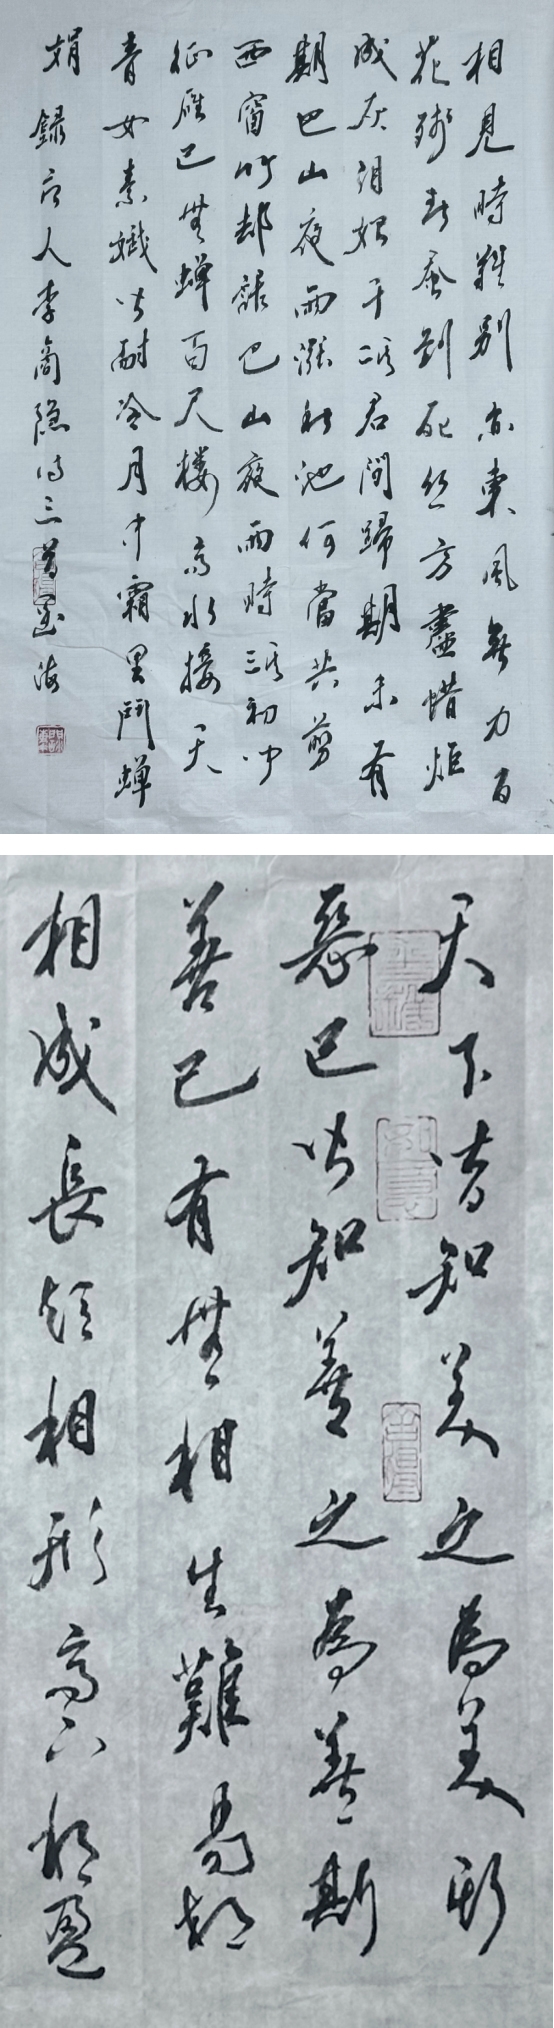 相見時難別亦東風無力百
花殘春蚕到死絲方盡蜡炬
成灰泪始干二首君問歸期未有
期巴山夜雨漲秋池何當共剪
西窗竹却話巴山夜雨時三首初聞
征雁已無蟬百尺樓高水接天
青女素孅皆耐冷月中霜里鬥蟬
娟録唐人李商隐诗三首 海
天下皆知美之為美斯
惡已皆知善之為善斯
善已有無相生難易相
相成長短相形高下相盈